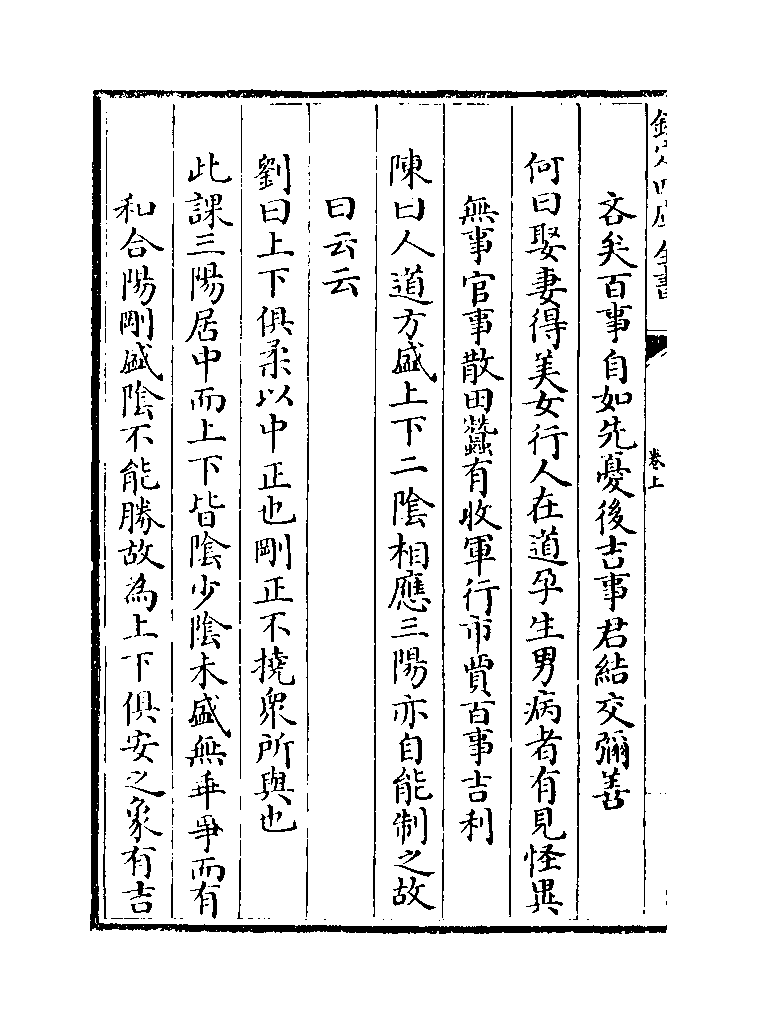 欽定四庫全書
卷上
吝矣百事自如先憂後吉事君結交彌善
何曰娶妻得美女行人在道孕生男病者有見怪異
無事官事散田蠶有收軍行市賈百事吉利
陳曰人道方盛上下二陰相應三陽亦自能制之故
曰云云
劉曰上下俱柔以中正也剛正不撓衆所與也
此課三陽居中而上下皆陰少陰未盛無乖爭而有
和合陽剛盛陰不能勝故為上下俱安之象有吉